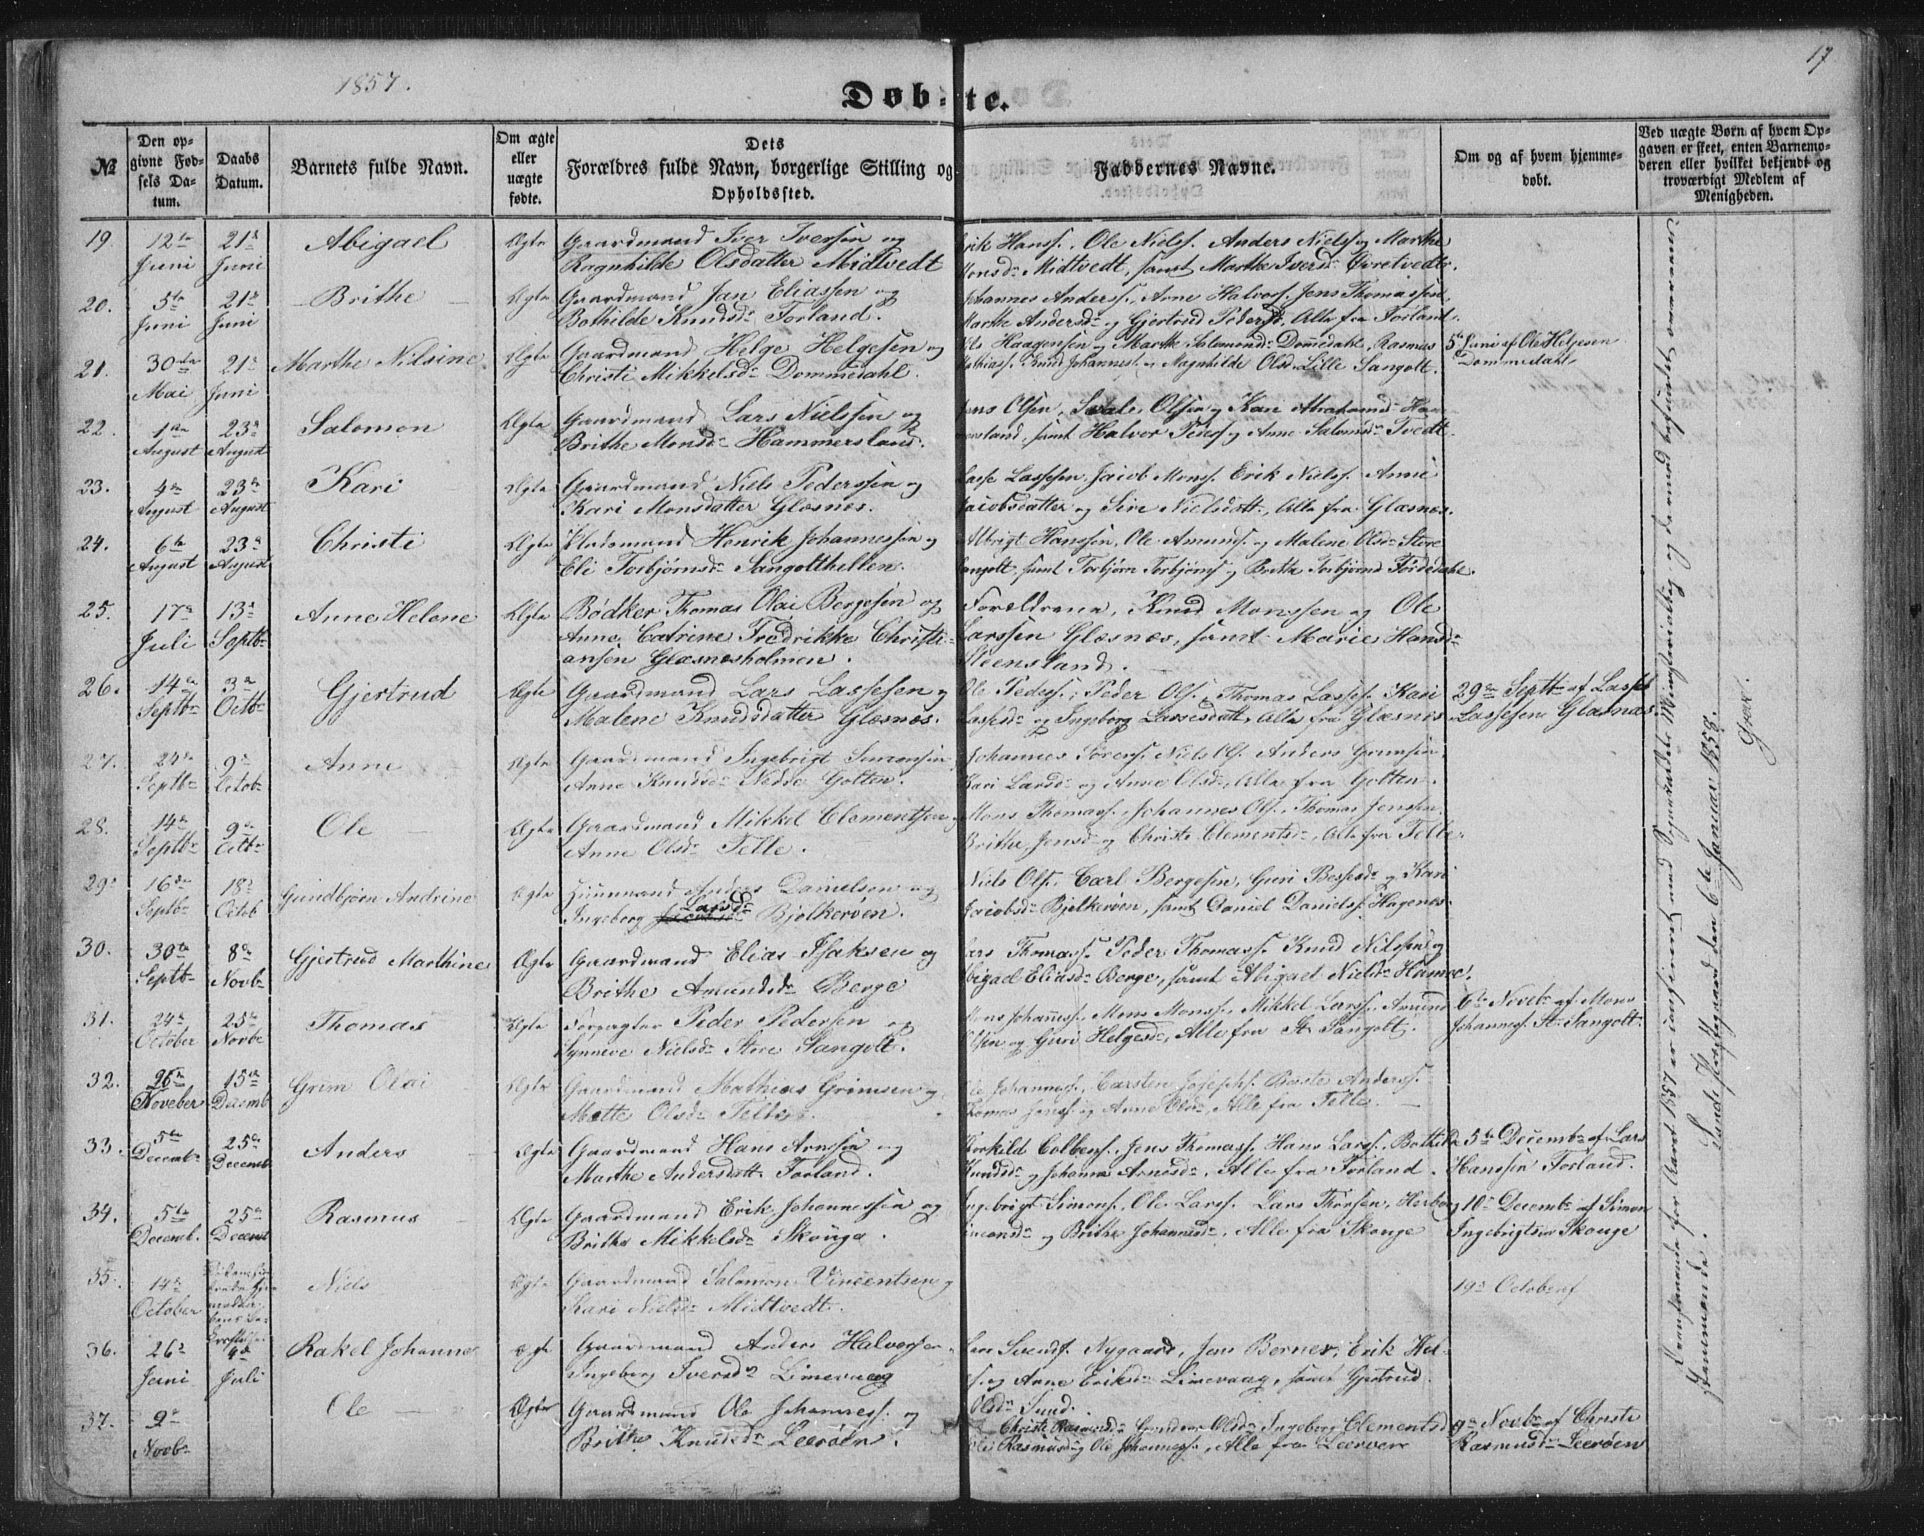 1857.
17
Døbte.
№
Den opgivne Fødsels Datum.
Daabs Datum.
Barnets fulde Navn.
Om ægte eller uægte fødte.
Dets Forældres fulde Navn, borgerlige Stilling og Opholdssted.
Faddernes Navne.
Om og af hvem hjemmedøbt.
Ved uægte Børn af hvem Opgaven er skeet, enten Barnemoderen eller hvilket bekjendt og troværdigt Medlem af Menigheden.
19. 12te Juni 21de Juni Abigael Ægte Gaardmand Iver Iversen og Ragnhilde Olsdatter Midtvedt
Erik Hanss. Ole Nielss. Anders Niels og Marthe Monsdr Midtvedt, samt Marthe Iversdr Øvretvedt.
20. 5te Juni 21de Juni Brithe Ægte Gaardmand Jan Eliassen og Bothilde Knudsdr Forland.
Johannes Anderss., Arne Halvors. Jens Thomassen, Marthe Andersdr og Gjertrud Pedersdr, Alle fra Forland.
21. 30te Mai 21de Juni Marthe Nilsine Ægte Gaardmand Helge Helgesen og Christi Mikkelsdr Dommedahl.
Nils Haagensen og Marthe Salomonsdr Dommedahl, Rasmus Mathiass. Knud Johanness. og Magnhilde Olsd. Lille Sangolt.
5te Juni af Ole Helgesen Dommedahl
22. 1te August 23de August Salomon Ægte Gaardmand Lars Nielssen og Brithe Monsdr Hammersland.
Jens Olsen, Olsen og Kari Abrahamsd. Hammersland, samt Halvor Peders. og Anne Salomsdr Tvedt.
23. 4de August 23de August Kari Ægte Gaardmand Niels Pederssen og Kari Monsdatter Glæsnes.
Lasse Lassesen, Jacob Mons. Erik Nielss. Anne Jacobsdatter og Siri Nielsdatt., Alle fra Glæsnes.
24. 6te August 23de August Christi Ægte Henrik Johannessen og Eli Torbjørnsdr Sangolthellen.
Albrigt Hanssen, Ole Amunds. og Malene Olsdr Store Sangolt, samt Torbjørn Torbjørns. og Brithe Torbjørnsd
25. 17de Juli 13de Septbr Anne Helene Ægte Bødker Thomas Olai Bergesen og Anne Catrine Fredrikke Christiansen Glæsnesholmen.
Forældrene, Knud Monssen og Ole Larssen Glæsnes, samt Marie Hansdr Steensland.
26. 14de Septbr 3de Octbr Gjertrud Ægte Gaardmand Lars Lassesen og Malene Knudsdatter Glæsnes.
Ole Peders., Peder Ols., Thomas Lasses. Kari Lassesdr og Ingeborg Larsesdatt., Alle fra Glæsnes
29de Septbr af Lasse Lassesen Glæsnæs.
27. 24de Septbr 9de Octobr Anne Ægte Gaardmand Ingebrigt Simonsen Anne Knudsdr Nedre Golten.
Johannes Sørens. Niels Ols. Anders Grimsen Kari Larsdr og Anne Olsdr, Alle fra Golten.
28. 14de Septbr 9de Octbr Ole Ægte Gaardmand Mikkel Clementsen og Anne Olsdr Telle.
Mons Thomass., Johannes Ols., Thomas Jenssen. Brithe Jensdr og Christi Clementsdr, Alle fra Telle.
29. 16de Septbr 18de Octob Gundbjørn Andrine Ægte Huusmand Anders Danielsen og Ingeborg Larsdr Bjelkerøen.
Niels Ols. Carl Bergesen, Guri Bessesdr og Kari Jacobsdr Bjelkerøen, samt Daniel Daniels. Hagenes.
30. 30te Septbr 8de Novbr Gjertrud Marthine Ægte Gaardmand Elias Isaksen og Brithe Amundsdr Berge
Lars Thomass. Peder Thomass. Knud Nilssen og Abigael Eliasdr Berge, samt Abigael Nielsdr Hamre.
31. 24de October 25de Novbr Thomas Ægte Forpagter Peder Pedersen og Synneve Nielsdr Store Sangolt.
Mons Johanness., Mons Mons., Mikkel Larss. Amund Olsen og Guri Helgesdr, Alle fra St. Sangolt.
6te Novbr af Mons Johanness. St. Sangolt.
32. 26de Noveber 15de Decemb Grim Olai Ægte Gaardmand Mathias Grimsen og Mette Olsdr Telle.
Ole Johanness., Carsten Josephs. Børste Anderss. Thomas Jens. og Anne Olsdr, Alle fra Telle.
33. 5te Decembr 25de Decemb Anders Ægte Gaardmand Hans Arnesen og Marthe Andersdatt. Forland.
Thorkild Colbens., Jens Thomass. Hans Larss. Bothilde Knudsdr og Johanna Arnesdr, Alle fra Forland.
5te Decembr af Lars Hanssen Forland.
34. 5te Decemb. 25de Decemb Rasmus Ægte Gaardmand Erik Johannessen og Brithe Mikkelsdr Skouge.
Ingebrigt Simons., Ole Larss. Lars Thorsen, Herborg Simonsdr og Brithe Johannesdr, Alle fra Skouge
10de Decembr af Simon Ingebrigtsen Skouge
35. 14de October Niels Ægte Gaardmand Salomon Vincentsen og Kari Nielsdr Midtvedt.
19de October af
36. 26de Juni 4de Juli Rakel Johanne Ægte Gaardmand Anders Halvorsen Ingeborg Iversdr Limevaag
Svends. Nygaard, Jens Berner, Erik og Anne Eriksdr Limevaag, samt Gjertrud Olsdr Sund.
37. 9de Novbr Ole Ægte Gaardmand Ole Johanness. og Brithe Knudsdr Leerøen.
Christi Rasmusdr Olsdr, Ingeborg Clementsd Rasmusd og Ole Johanness., Alle fra Leerøen
9de Novbr af Christi Rasmusdr Leerøen
Ovenstaaende for Aaret 1857 er confereret med Sognekaldets Ministerialbog og dermed befundet overensstemmende.
Sunds Præstegaard den 6te Januar 1858.